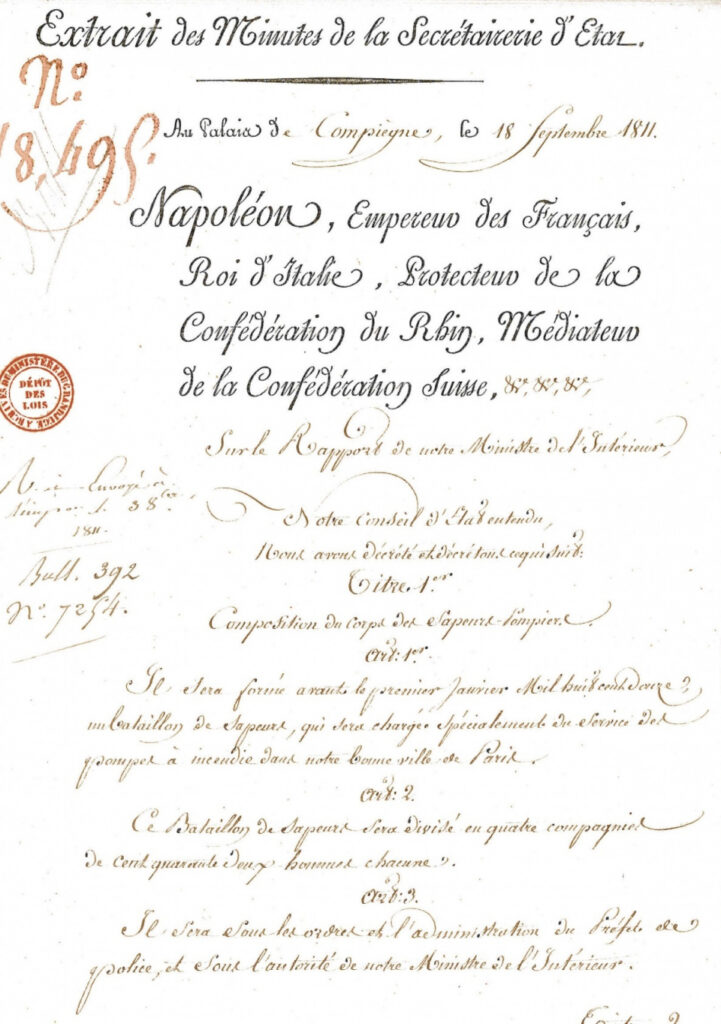 Extrait des Minutes de la Secrétairerie d'Etat.
N.º
18,495.
Au Palais de Compiègne, le 18 Septembre 1811.
Napoléon, Empereur des Français,
Roi d'Italie, Protecteur de la
Confédération du Rhin, Médiateur
de la Confédération Suisse, &c, &c, &c,
ARCHIVES DU MINISTÈRE DU GRAND JUGE
DÉPÔT
DES
LOIS
Sur le Rapport de notre Ministre de l'Intérieur,
Envoyé à
1811.
Bull. 392
N.º 7254.
Notre Conseil d'Etat entendu,
Nous avons décrété et décrétons ce qui suit:
Titre 1.er
Composition du corps des Sapeurs-Pompiers.
Art: 1.er
Il sera formé avant le premier Janvier Mil huit cent douze,
un bataillon de Sapeurs, qui sera chargé spécialement du Service des
pompes à incendie dans notre bonne ville de Paris.
Art: 2.
Ce Bataillon de Sapeurs sera divisé en quatre compagnies
de cent quarante deux hommes chacune.
Art: 3.
Il sera sous les ordres et l'administration du Préfet de
police, et sous l'autorité de notre Ministre de l'Intérieur.